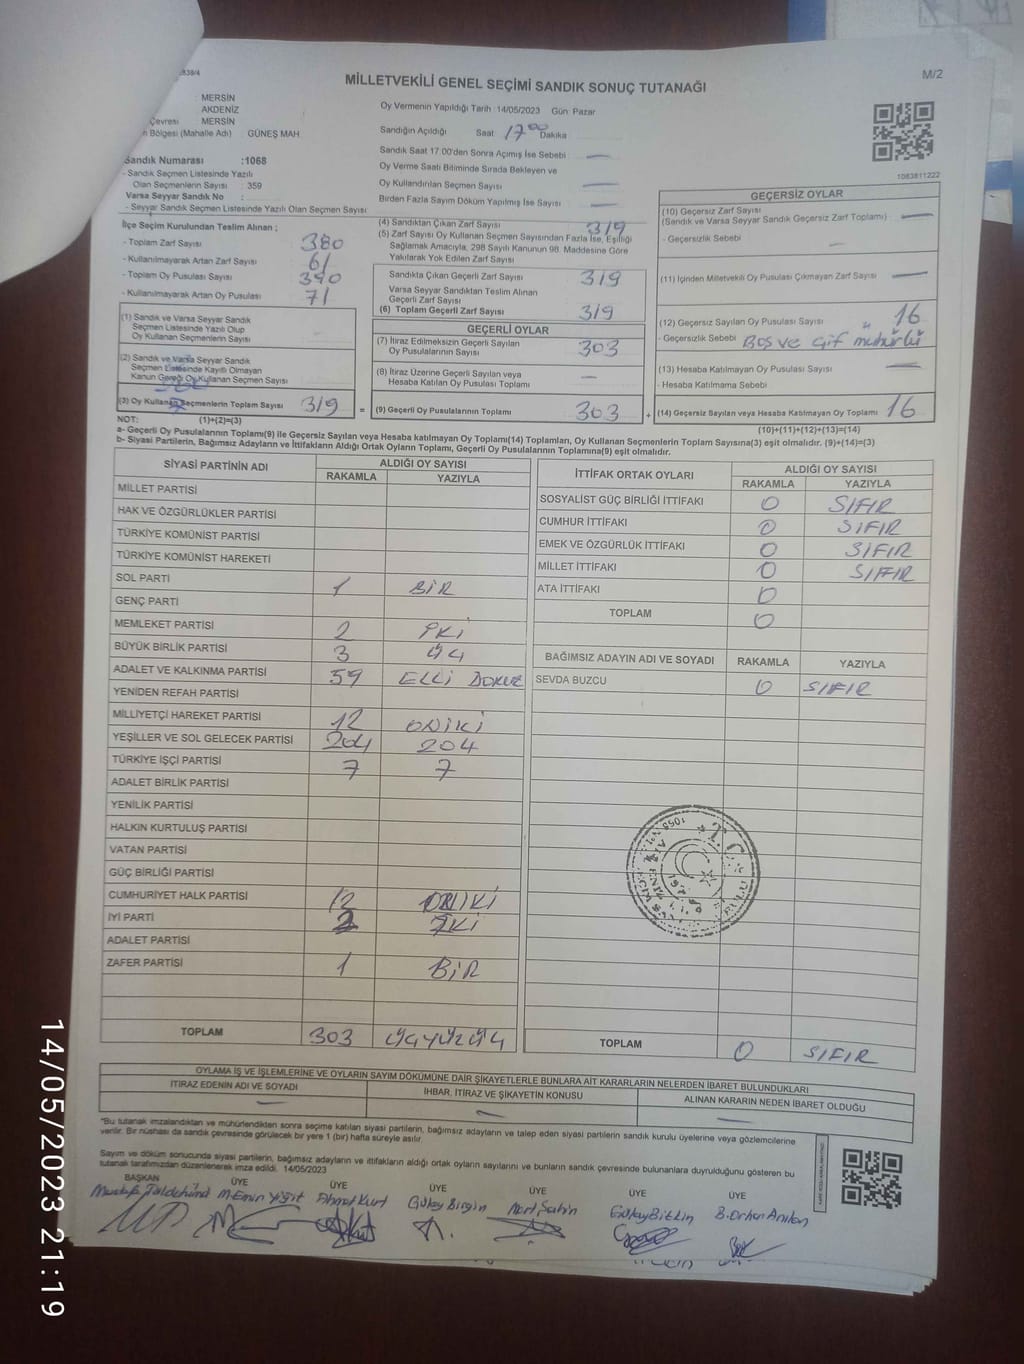 838/4
MİLLETVEKİLİ GENEL SEÇİMİ SANDIK SONUÇ TUTANAĞI
M/2
MERSİN
AKDENİZ
Çevresi MERSİN
Bölgesi (Mahalle Adı) GÜNEŞ MAH
Sandık Numarası :1068
- Sandık Seçmen Listesinde Yazılı
Olan Seçmenlerin Sayısı : 359
Varsa Seyyar Sandık No :
- Seyyar Sandık Seçmen Listesinde Yazılı Olan Seçmen Sayısı
Oy Vermenin Yapıldığı Tarih :14/05/2023 Gün: Pazar
Sandığın Açıldığı Saat 17 00 Dakika
Sandık Saat 17.00'den Sonra Açımış İse Sebebi —
Oy Verme Saati Bitiminde Sırada Bekleyen ve
Oy Kullandırılan Seçmen Sayısı —
Birden Fazla Sayım Döküm Yapılmış İse Sayısı —
1083811222
İlçe Seçim Kurulundan Teslim Alınan ;
- Toplam Zarf Sayısı 380
- Kullanılmayarak Artan Zarf Sayısı 61
- Toplam Oy Pusulası Sayısı 390
- Kullanılmayarak Artan Oy Pusulası 71
(1) Sandık ve Varsa Seyyar Sandık
Seçmen Listesinde Yazılı Olup
Oy Kullanan Seçmenlerin Sayısı
(2) Sandık ve Varsa Seyyar Sandık
Seçmen Listesinde Kayıtlı Olmayan
Kanun Gereği Oy Kullanan Seçmen Sayısı
(3) Oy Kullanan Seçmenlerin Toplam Sayısı 319
(4) Sandıktan Çıkan Zarf Sayısı 319
(5) Zarf Sayısı Oy Kullanan Seçmen Sayısından Fazla İse, Eşitliği
Sağlamak Amacıyla, 298 Sayılı Kanunun 98. Maddesine Göre
Yakılarak Yok Edilen Zarf Sayısı
Sandıkta Çıkan Geçerli Zarf Sayısı 319
Varsa Seyyar Sandıktan Teslim Alınan
Geçerli Zarf Sayısı
(6) Toplam Geçerli Zarf Sayısı 319
GEÇERLİ OYLAR
(7) İtiraz Edilmeksizin Geçerli Sayılan
Oy Pusulalarının Sayısı 303
(8) İtiraz Üzerine Geçerli Sayılan veya
Hesaba Katılan Oy Pusulası Toplamı —
= (9) Geçerli Oy Pusulalarının Toplamı 303
GEÇERSİZ OYLAR
(10) Geçersiz Zarf Sayısı
(Sandık ve Varsa Seyyar Sandık Geçersiz Zarf Toplamı) —
- Geçersizlik Sebebi —
(11) İçinden Milletvekili Oy Pusulası Çıkmayan Zarf Sayısı —
(12) Geçersiz Sayılan Oy Pusulası Sayısı 16
- Geçersizlik Sebebi Boş ve çift mühürlü
(13) Hesaba Katılmayan Oy Pusulası Sayısı —
- Hesaba Katılmama Sebebi
+ (14) Geçersiz Sayılan veya Hesaba Katılmayan Oy Toplamı 16
NOT: (1)+(2)=(3)
(10)+(11)+(12)+(13)=(14)
a- Geçerli Oy Pusulalarının Toplamı(9) ile Geçersiz Sayılan veya Hesaba katılmayan Oy Toplamı(14) Toplamları, Oy Kullanan Seçmenlerin Toplam Sayısına(3) eşit olmalıdır. (9)+(14)=(3)
b- Siyasi Partilerin, Bağımsız Adayların ve İttifakların Aldığı Ortak Oyların Toplamı, Geçerli Oy Pusulalarının Toplamına(9) eşit olmalıdır.
SİYASİ PARTİNİN ADI ALDIĞI OY SAYISI
RAKAMLA YAZIYLA
MİLLET PARTİSİ
HAK VE ÖZGÜRLÜKLER PARTİSİ
TÜRKİYE KOMÜNİST PARTİSİ
TÜRKİYE KOMÜNİST HAREKETİ
SOL PARTİ 1 BİR
GENÇ PARTİ
MEMLEKET PARTİSİ 2 İKİ
BÜYÜK BİRLİK PARTİSİ 3 ÜÇ
ADALET VE KALKINMA PARTİSİ 59 ELLİ DOKUZ
YENİDEN REFAH PARTİSİ
MİLLİYETÇİ HAREKET PARTİSİ 12 ONİKİ
YEŞİLLER VE SOL GELECEK PARTİSİ 204 204
TÜRKİYE İŞÇİ PARTİSİ 7 7
ADALET BİRLİK PARTİSİ
YENİLİK PARTİSİ
HALKIN KURTULUŞ PARTİSİ
VATAN PARTİSİ
GÜÇ BİRLİĞİ PARTİSİ
CUMHURİYET HALK PARTİSİ 12 ONİKİ
İYİ PARTİ 2 İKİ
ADALET PARTİSİ
ZAFER PARTİSİ 1 BİR
TOPLAM 303 ÜÇYÜZÜÇ
İTTİFAK ORTAK OYLARI ALDIĞI OY SAYISI
RAKAMLA YAZIYLA
SOSYALİST GÜÇ BİRLİĞİ İTTİFAKI 0 SIFIR
CUMHUR İTTİFAKI 0 SIFIR
EMEK VE ÖZGÜRLÜK İTTİFAKI 0 SIFIR
MİLLET İTTİFAKI 0 SIFIR
ATA İTTİFAKI 0
TOPLAM 0
BAĞIMSIZ ADAYIN ADI VE SOYADI RAKAMLA YAZIYLA
SEVDA BUZCU 0 SIFIR
TOPLAM 0 SIFIR
OYLAMA İŞ VE İŞLEMLERİNE VE OYLARIN SAYIM DÖKÜMÜNE DAİR ŞİKAYETLERLE BUNLARA AİT KARARLARIN NELERDEN İBARET BULUNDUKLARI
İTİRAZ EDENİN ADI VE SOYADI İHBAR, İTİRAZ VE ŞİKAYETİN KONUSU ALINAN KARARIN NEDEN İBARET OLDUĞU
— — —
"Bu tutanak imzalandıktan ve mühürlendikten sonra seçime katılan siyasi partilerin, bağımsız adayların ve talep eden siyasi partilerin sandık kurulu üyelerine veya gözlemcilerine
verilir. Bir nüshası da sandık çevresinde görülecek bir yere 1 (bir) hafta süreyle asılır.
Sayım ve döküm sonucunda siyasi partilerin, bağımsız adayların ve ittifakların aldığı ortak oyların sayılarını ve bunların sandık çevresinde bulunanlara duyrulduğunu gösteren bu
tutanak tarafımızdan düzenlenerek imza edildi. 14/05/2023
BAŞKAN ÜYE ÜYE ÜYE ÜYE ÜYE ÜYE
Mustafa M.Emin Yiğit Ahmet Kurt Gülay Birgin Mert Şahin Gülay Bitkin B.Orhan Arıkan
14/05/2023 21:19